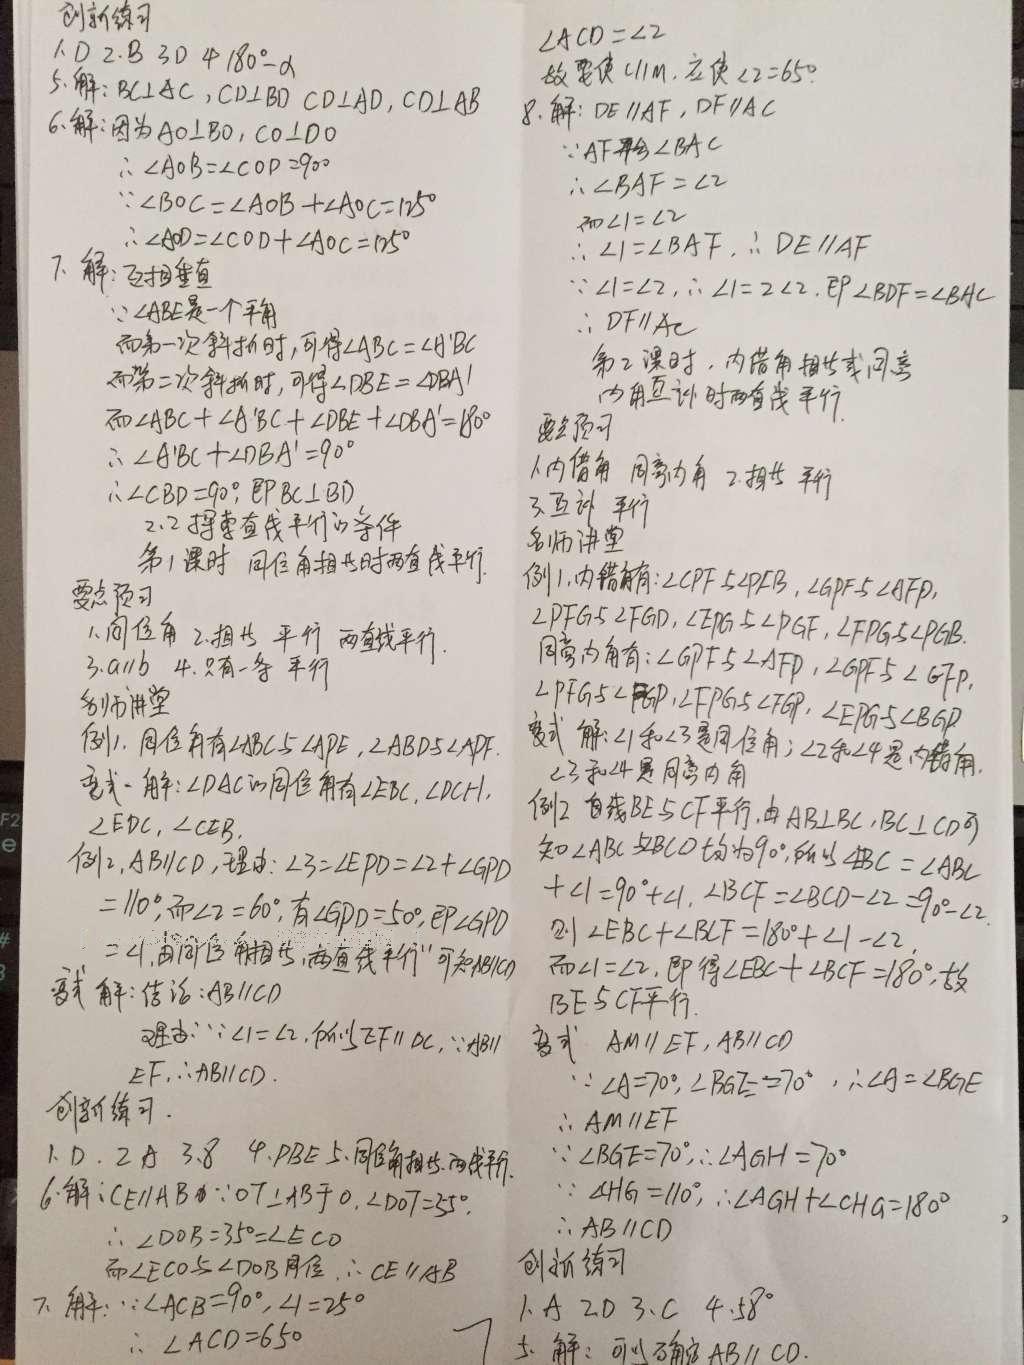 创新练习
1.D 2.B 3.D 4.180°-α
5.解:BC⊥AC,CD⊥BD CD⊥AD,CD⊥AB
6.解:因为AO⊥BO,CO⊥DO
∴∠AOB=∠COD=90°
∵∠BOC=∠AOB+∠AOC=125°
∴∠AOD=∠COD+∠AOC=125°
7.解:互相垂直
∵∠ABE是一个平角
而第一次斜折时,可得∠ABC=∠A'BC
而第二次斜折时,可得∠DBE=∠DBA'
而∠ABC+∠A'BC+∠DBE+∠DBA'=180°
∴∠A'BC+∠DBA'=90°
∴∠CBD=90°,即BC⊥BD
2.2 探索直线平行的条件
第1课时 同位角相等时两直线平行.
要点预习
1.同位角 2.相等 平行 两直线平行.
3.a∥b 4.只有一条 平行
名师讲堂
例1.同位角有∠ABC与∠APE,∠ABD与∠APF.
变式一解:∠DAC的同位角有∠EBC,∠DCH,
∠EDC,∠CEB.
例2,AB∥CD,理由:∠3=∠EPD=∠2+∠GPD
=110°,而∠2=60°,有∠GPD=50°,即∠GPD
=∠1,由同位角相等,两直线平行"可知AB∥CD
变式 解:结论:AB∥CD
理由:∵∠1=∠2,所以EF∥DC,∵AB∥
EF,∴AB∥CD.
创新练习.
1.D. 2.A 3.8 4.PBE 5.同位角相等.两线平行.
6.解:CE∥AB ∵OT⊥AB于O,∠DOT=55°.
∴∠DOB=35°=∠ECO
而∠ECO与∠DOB同位,∴CE∥AB
7.解:∵∠ACB=90°,∠1=25°
∴∠ACD=65°
∠ACD=∠2
故要使L∥M,应使∠2=65°.
8.解:DE∥AF,DF∥AC
∵AF平分∠BAC
∴∠BAF=∠2
而∠1=∠2
∴∠1=∠BAF,∴DE∥AF
∵∠1=∠2,∴∠1=2∠2,即∠BDF=∠BAC
∴DF∥AC
第2课时,内错角相等或同旁
内角互补时两直线平行.
要点预习
1.内错角 同旁内角 2.相等 平行
3.互补 平行
名师讲堂
例1.内错角有:∠CPF与∠PFB,∠GPF与∠AFP,
∠PFG与∠FGD,∠EPG与∠PGF,∠FPG与∠PGB.
同旁内角有:∠GPF与∠AFP,∠GPF与∠GFP,
∠PFG与∠FGP,∠FPG与∠FGP,∠EPG与∠BGP
变式 解:∠1和∠3是同位角;∠2和∠4是内错角.
∠3和∠4是同旁内角
例2 直线BE与CF平行,由AB⊥BC,BC⊥CD可
知∠ABC与BCD均为90°,所以∠EBC=∠ABC
+∠1=90°+∠1,∠BCF=∠BCD-∠2=90°-∠2.
则∠EBC+∠BCF=180°+∠1-∠2,
而∠1=∠2,即得∠EBC+∠BCF=180°,故
BE与CF平行.
变式 AM∥EF,AB∥CD
∵∠A=70°,∠BGE=70°,∴∠A=∠BGE
∴AM∥EF
∵∠BGE=70°,∴∠AGH=70°
∵∠CHG=110°,∴∠AGH+∠CHG=180°
∴AB∥CD
创新练习
1.A 2.D 3.C 4.58°
5.解:可以确定AB∥CD.